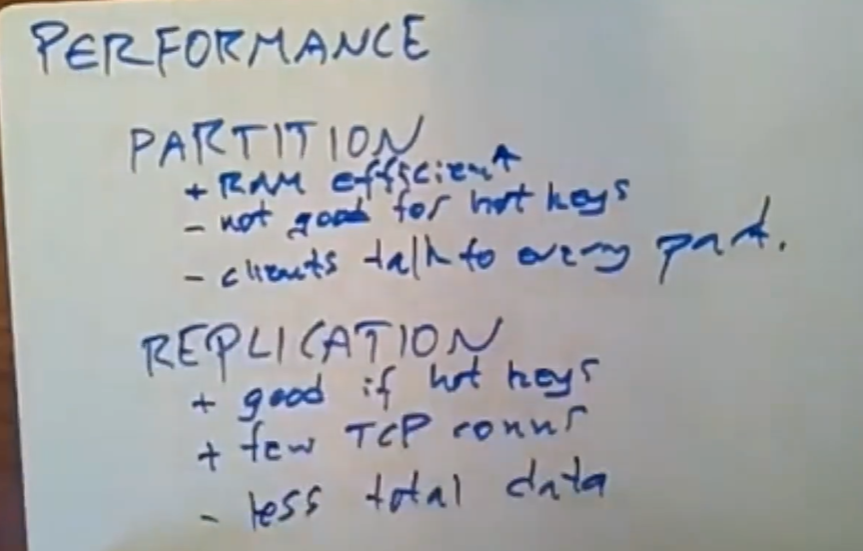 PERFORMANCE
PARTITION
+ RAM efficient
- not good for hot keys
- clients talk to every part.
REPLICATION
+ good if hot keys
+ few TCP conns
- less total data